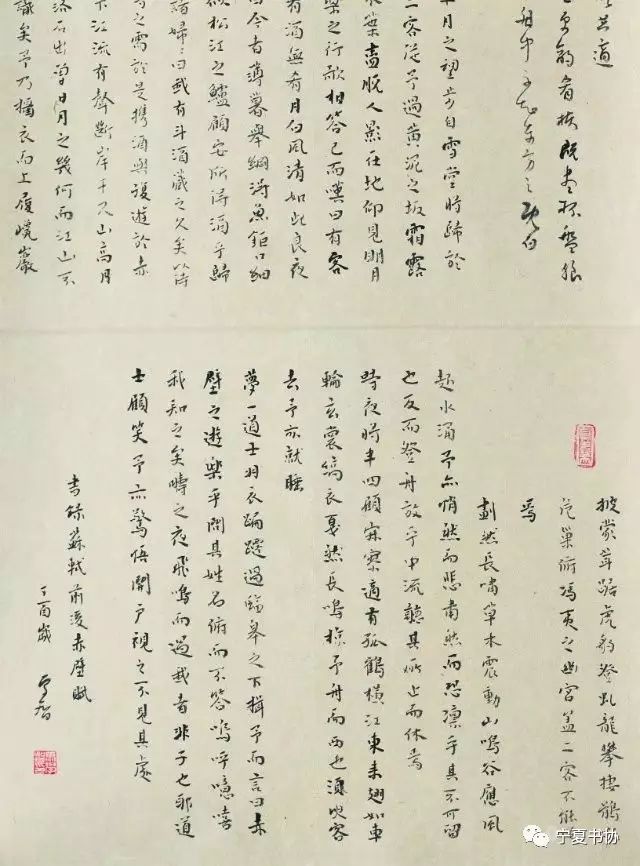 共適
更酌肴核既盡杯盤狼
舟中不知東方之既白
十月之望步自雪堂將歸於
二客從予過黄泥之坂霜露
木葉盡脱人影在地仰見明月
樂之行歌相答已而嘆曰有客
有酒無肴月白風清如此良夜
曰今者薄暮舉網得魚鉅口細
似松江之鱸顧安所得酒乎歸
諸婦婦曰我有斗酒藏之久矣以待
之需於是携酒與復遊於赤
下江流有聲斷岸千尺山高月
落石出曾日月之幾何而江山不
識矣予乃攝衣而上履巉巖
披蒙茸踞虎豹登虬龍攀棲鶻
危巢俯馮夷之幽宮蓋二客不能
焉
劃然長嘯草木震動山鳴谷應風
起水涌予亦悄然而悲肅然而恐凛乎其不可留
也反而登舟放乎中流聽其所止而休焉
時夜將半四顧寂寥適有孤鶴橫江東来翅如車
輪玄裳縞衣戛然長鳴掠予舟而西也須臾客
去予亦就睡
夢一道士羽衣蹁躚過臨皋之下揖予而言曰赤
壁之遊樂乎問其姓名俯而不答嗚呼噫嘻
我知之矣疇之夜飛鳴而過我者非子也邪道
士顧笑予亦驚悟開戶視之不見其處
書録蘇軾前後赤壁賦
丁酉歲
宁夏书协